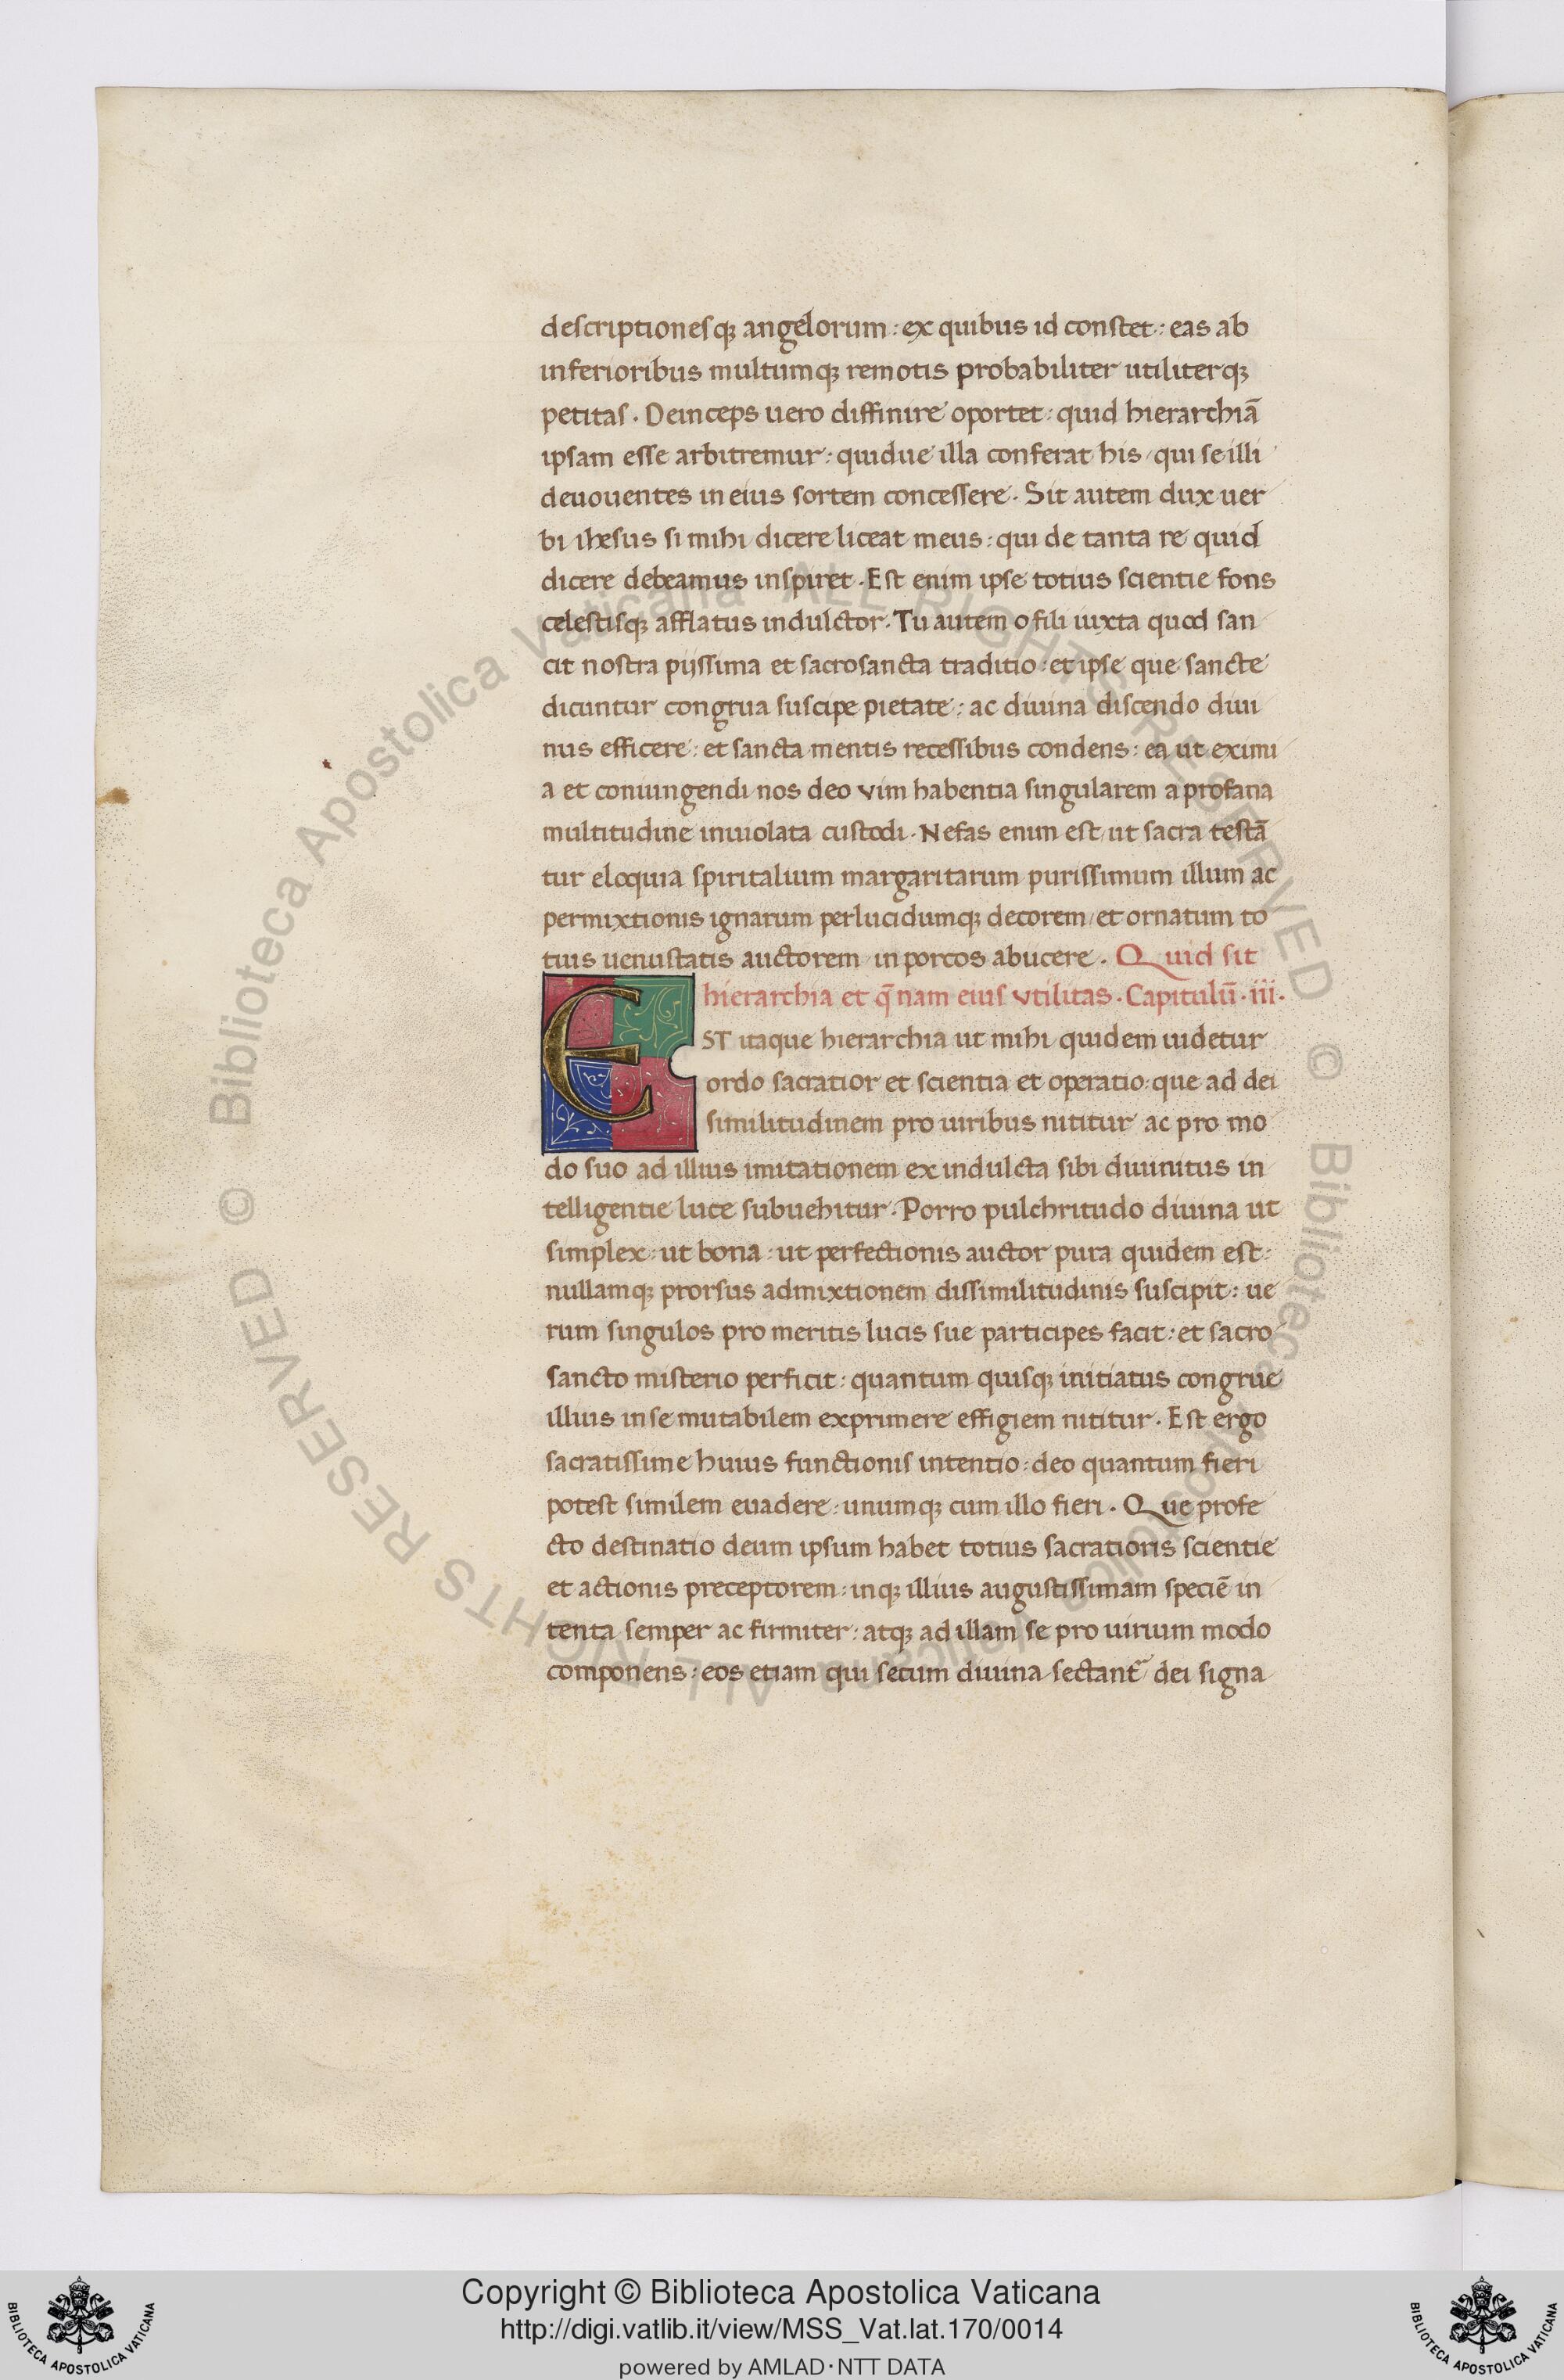 descriptionesqꝫ angelorum: ex quibus id constet: eas ab
inferioribus multumqꝫ remotis probabiliter utiliterqꝫ
petitas. Deinceps uero diffinire oportet: quid hierarchiā
ipsam esse arbitremur: quidue illa conferat his/ qui se illi
deuouentes in eius sortem concessere. Sit autem dux uer
bi ihesus si mihi dicere liceat meus: qui de tanta re quid
dicere debeamus inspiret. Est enim ipse totius scientie fons
celestisqꝫ afflatus indultor. Tu autem o fili iuxta quod san
cit nostra pijssima et sacrosancta traditio: et ipse que sancte
dicuntur congrua suscipe pietate: ac diuina discendo diui
nus efficere: et sancta mentis recessibus condens: ea ut eximi
a et coniungendi nos deo vim habentia singularem a profana
multitudine inuiolata custodi. Nefas enim est/ ut sacra testā
tur eloquia spiritalium margaritarum purissimum illum ac
permixtionis ignarum perlucidumqꝫ decorem/ et ornatum to
tius uenustatis auctorem/ in porcos abiicere. Quid sit
hierarchia et q̄nam eius vtilitas. Capitulū. iii.
EST itaque hierarchia ut mihi quidem uidetur
ordo sacratior et scientia et operatio: que ad dei
similitudinem pro uiribus nititur ac pro mo
do suo ad illius imitationem ex indulta sibi diuinitus in
telligentie luce subuehitur. Porro pulchritudo diuina ut
simplex: ut bona: ut perfectionis auctor pura quidem est:
nullamqꝫ prorsus admixtionem dissimilitudinis suscipit: ue
rum singulos pro meritis lucis sue participes facit: et sacro
sancto misterio perficit: quantum quisqꝫ initiatus congrue
illius in se mutabilem exprimere effigiem nititur. Est ergo
sacratissime huius functionis intentio: deo quantum fieri
potest similem euadere: unumqꝫ cum illo fieri. Que profe
cto destinatio deum ipsum habet totius sacratioris scientie
et actionis preceptorem: inqꝫ illius augustissimam speciē in
tenta semper ac firmiter: atqꝫ ad illam se pro uirium modo
componens: eos etiam qui secum diuina sectant᷑ dei signa
Copyright © Biblioteca Apostolica Vaticana
http://digi.vatlib.it/view/MSS_Vat.lat.170/0014
powered by AMLAD·NTT DATA
BIBLIOTECA APOSTOLICA VATICANA
BIBLIOTECA APOSTOLICA VATICANA
© Biblioteca Apostolica Vaticana ALL RIGHTS RESERVED
© Biblioteca Apostolica Vaticana ALL RIGHTS RESERVED